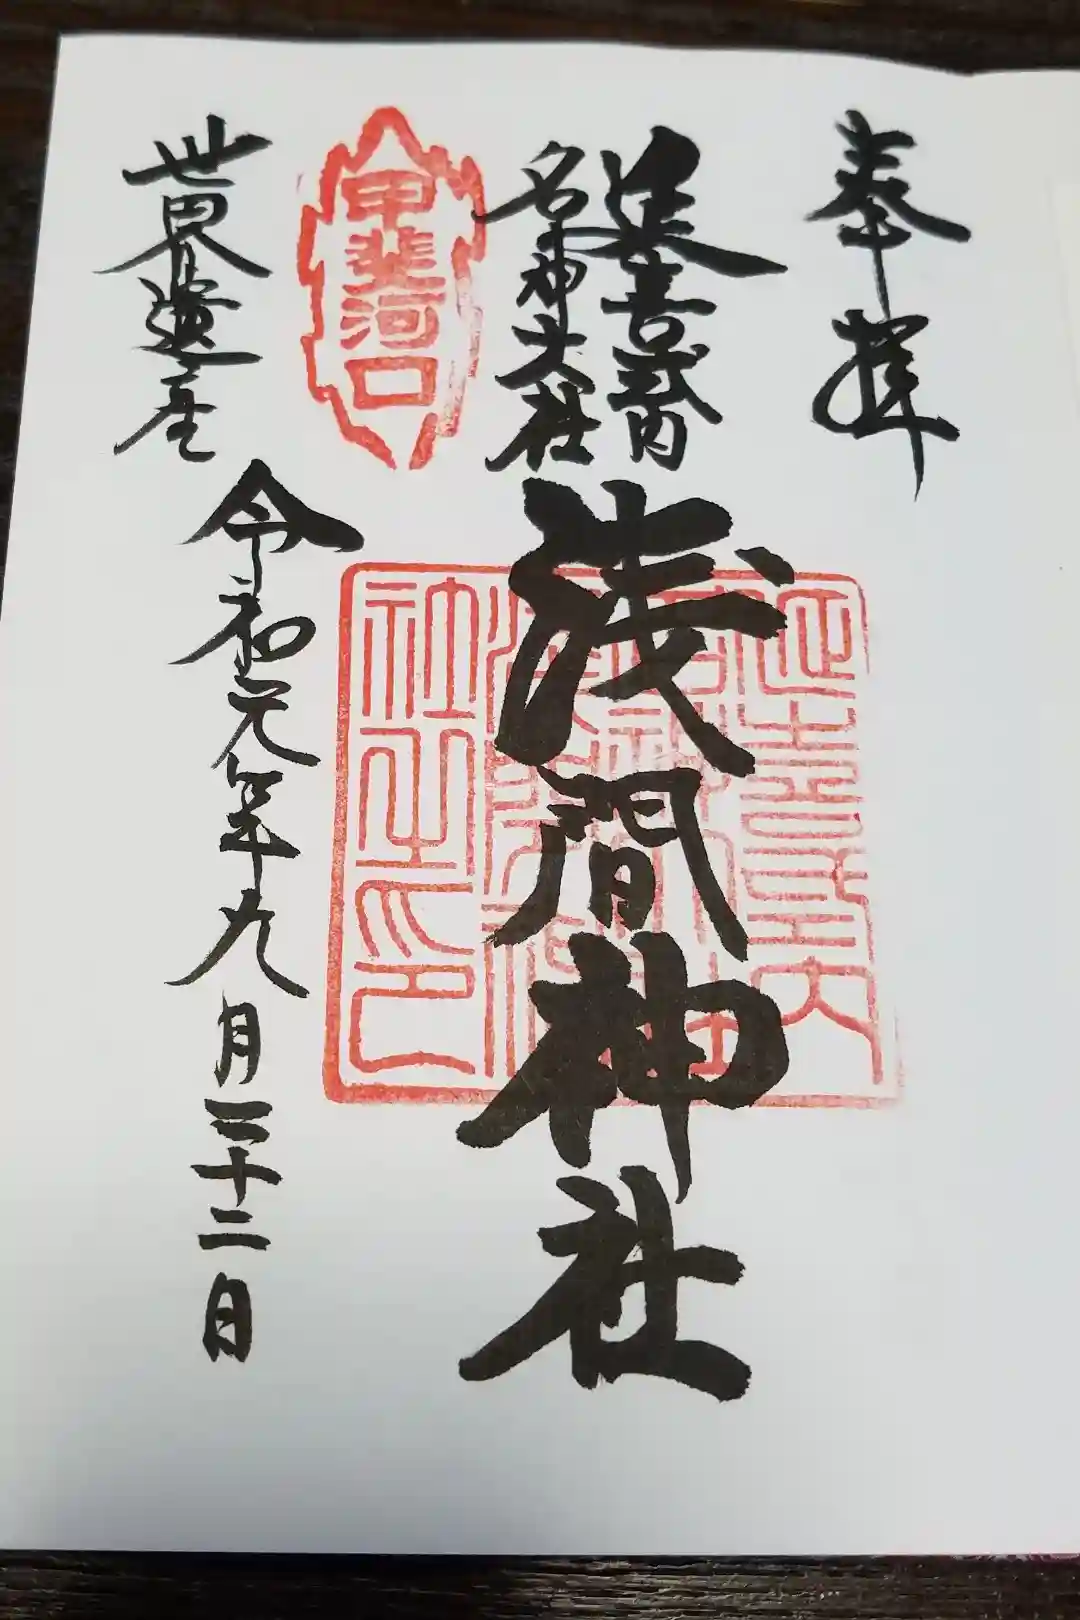 奉拝
延喜式内
名神大社
浅間神社
甲斐河口
世界遺産
令和元年九月二十二日
延喜式内
社之印